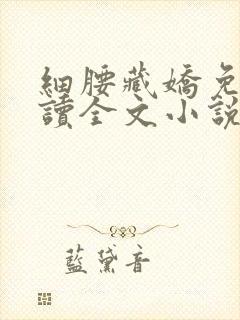 細腰藏嬌免
讀全文小說
藍黛音